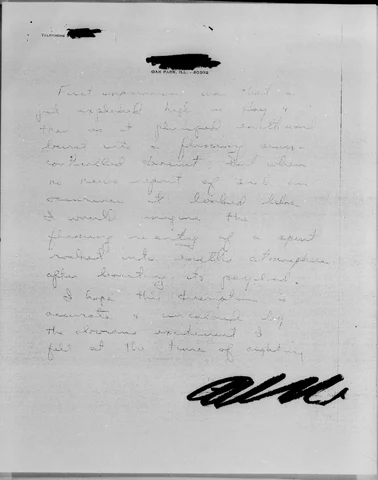 TELEPHONE
OAK PARK, ILL. - 60302
First impression was that a
jet exploded high in sky &
then as it plunged earthward
burst into a flaming
controlled descent. But when
no news report of such an
occurrence it looked like
I would imagine the
flaming re entry of a spent
rocket into earth's atmosphere
after boosting its payload.
I hope this description is
accurate & uncolored by
the obvious excitement I
felt at the time of sighting